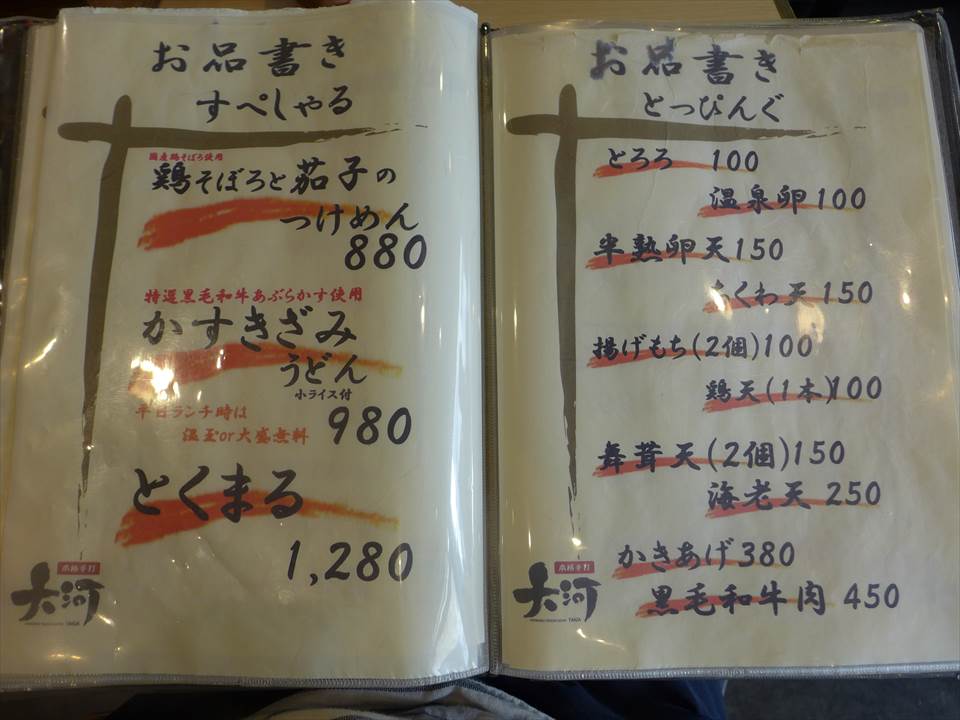 お品書き
すぺしゃる
国産鶏そぼろ使用
鶏そぼろと茄子の
つけめん
880
特選黒毛和牛あぶらかす使用
かすきざみ
うどん
小ライス付
平日ランチ時は
温玉or大盛無料
980
とくまる
1,280
本格手打
大河
TAIGA
お品書き
とっぴんぐ
とろろ 100
温泉卵 100
半熟卵天 150
ちくわ天 150
揚げもち(2個) 100
鶏天(1本) 100
舞茸天(2個) 150
海老天 250
かきあげ 380
黒毛和牛肉 450
本格手打
大河
TAIGA